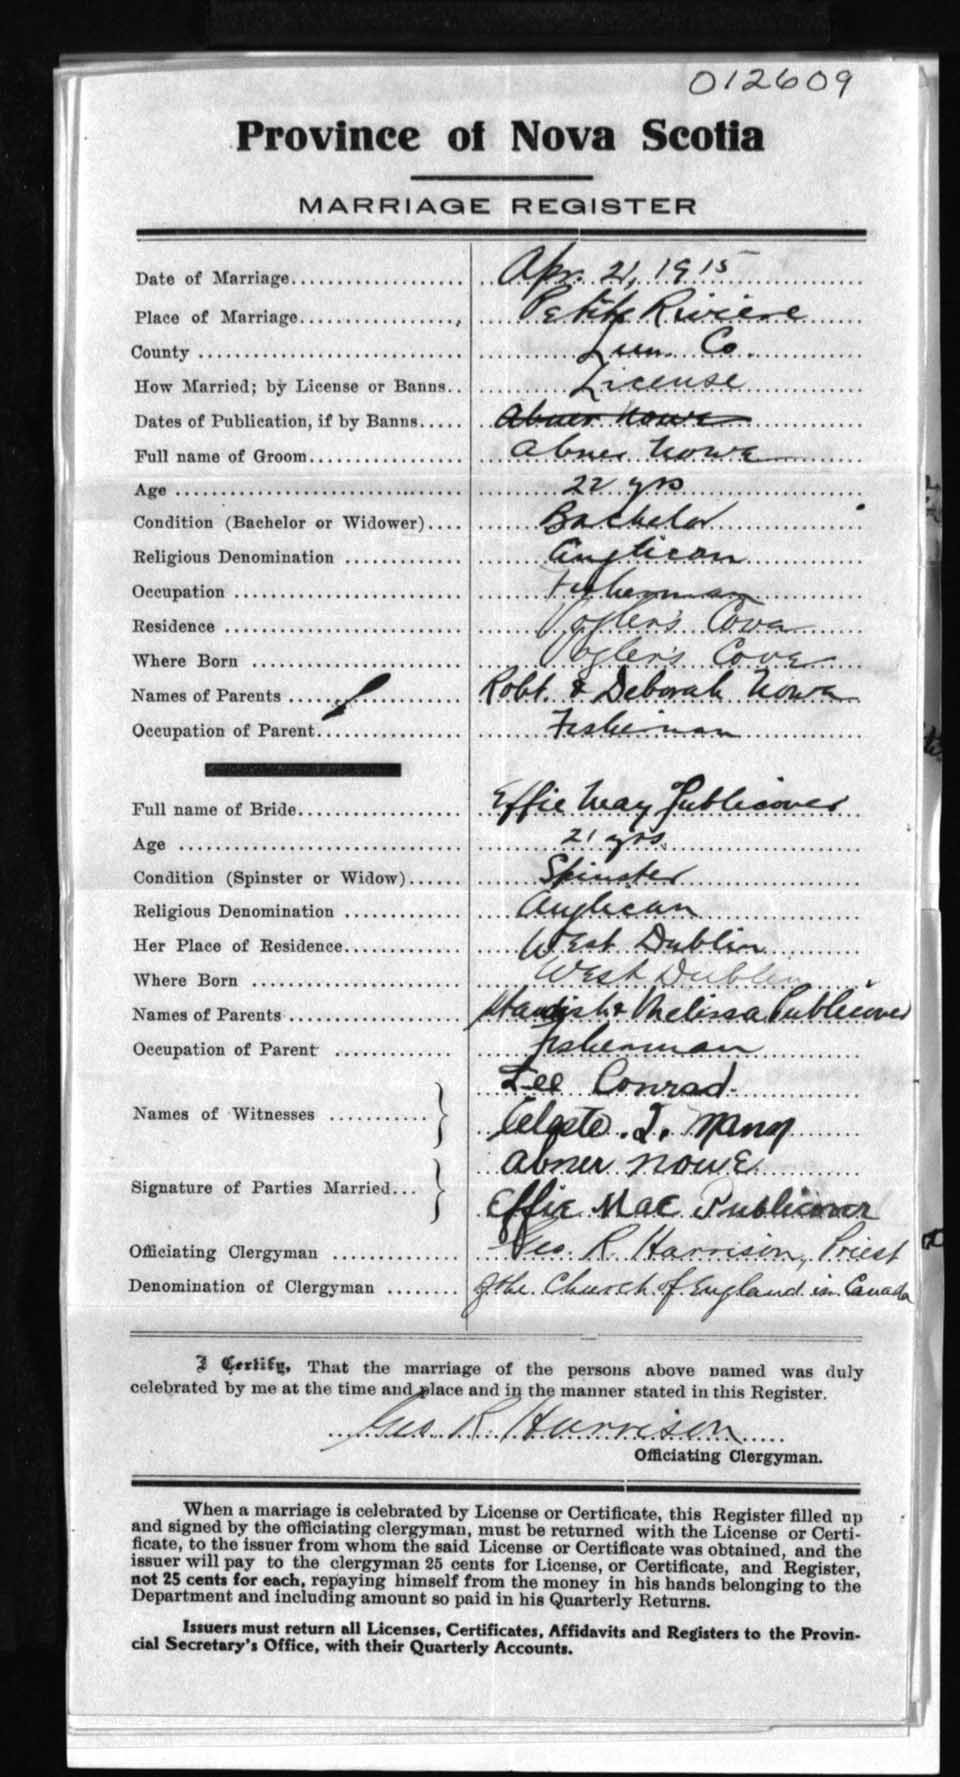 012609
Province of Nova Scotia
MARRIAGE REGISTER
Date of Marriage Apr. 21, 1915
Place of Marriage Petite Riviere
County Lun. Co.
How Married; by License or Banns License
Dates of Publication, if by Banns Abner Nowe
Full name of Groom Abner Nowe
Age 22 yrs
Condition (Bachelor or Widower) Bachelor
Religious Denomination Anglican
Occupation Fisherman
Residence Vogler's Cove
Where Born Vogler's Cove
Names of Parents Robt. & Deborah Nowe
Occupation of Parent Fisherman
Full name of Bride Effie May Publicover
Age 21 yrs
Condition (Spinster or Widow) Spinster
Religious Denomination Anglican
Her Place of Residence West Dublin
Where Born West Dublin
Names of Parents & Melissa Publicover
Occupation of Parent Fisherman
Names of Witnesses Lee Conrad
Signature of Parties Married Abner Nowe
Effie Mae Publicover
Officiating Clergyman Geo. R. Harrison, Priest
Denomination of Clergyman of the Church of England in Canada
I Certify, That the marriage of the persons above named was duly
celebrated by me at the time and place and in the manner stated in this Register.
Geo R. Harrison
Officiating Clergyman.
When a marriage is celebrated by License or Certificate, this Register filled up
and signed by the officiating clergyman, must be returned with the License or Certi-
ficate, to the issuer from whom the said License or Certificate was obtained, and the
issuer will pay to the clergyman 25 cents for License, or Certificate, and Register,
not 25 cents for each, repaying himself from the money in his hands belonging to the
Department and including amount so paid in his Quarterly Returns.
Issuers must return all Licenses, Certificates, Affidavits and Registers to the Provin-
cial Secretary's Office, with their Quarterly Accounts.